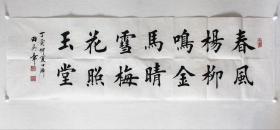 春風
楊柳
鳴金
馬晴
雪梅
花照
玉堂
丁亥
田英章